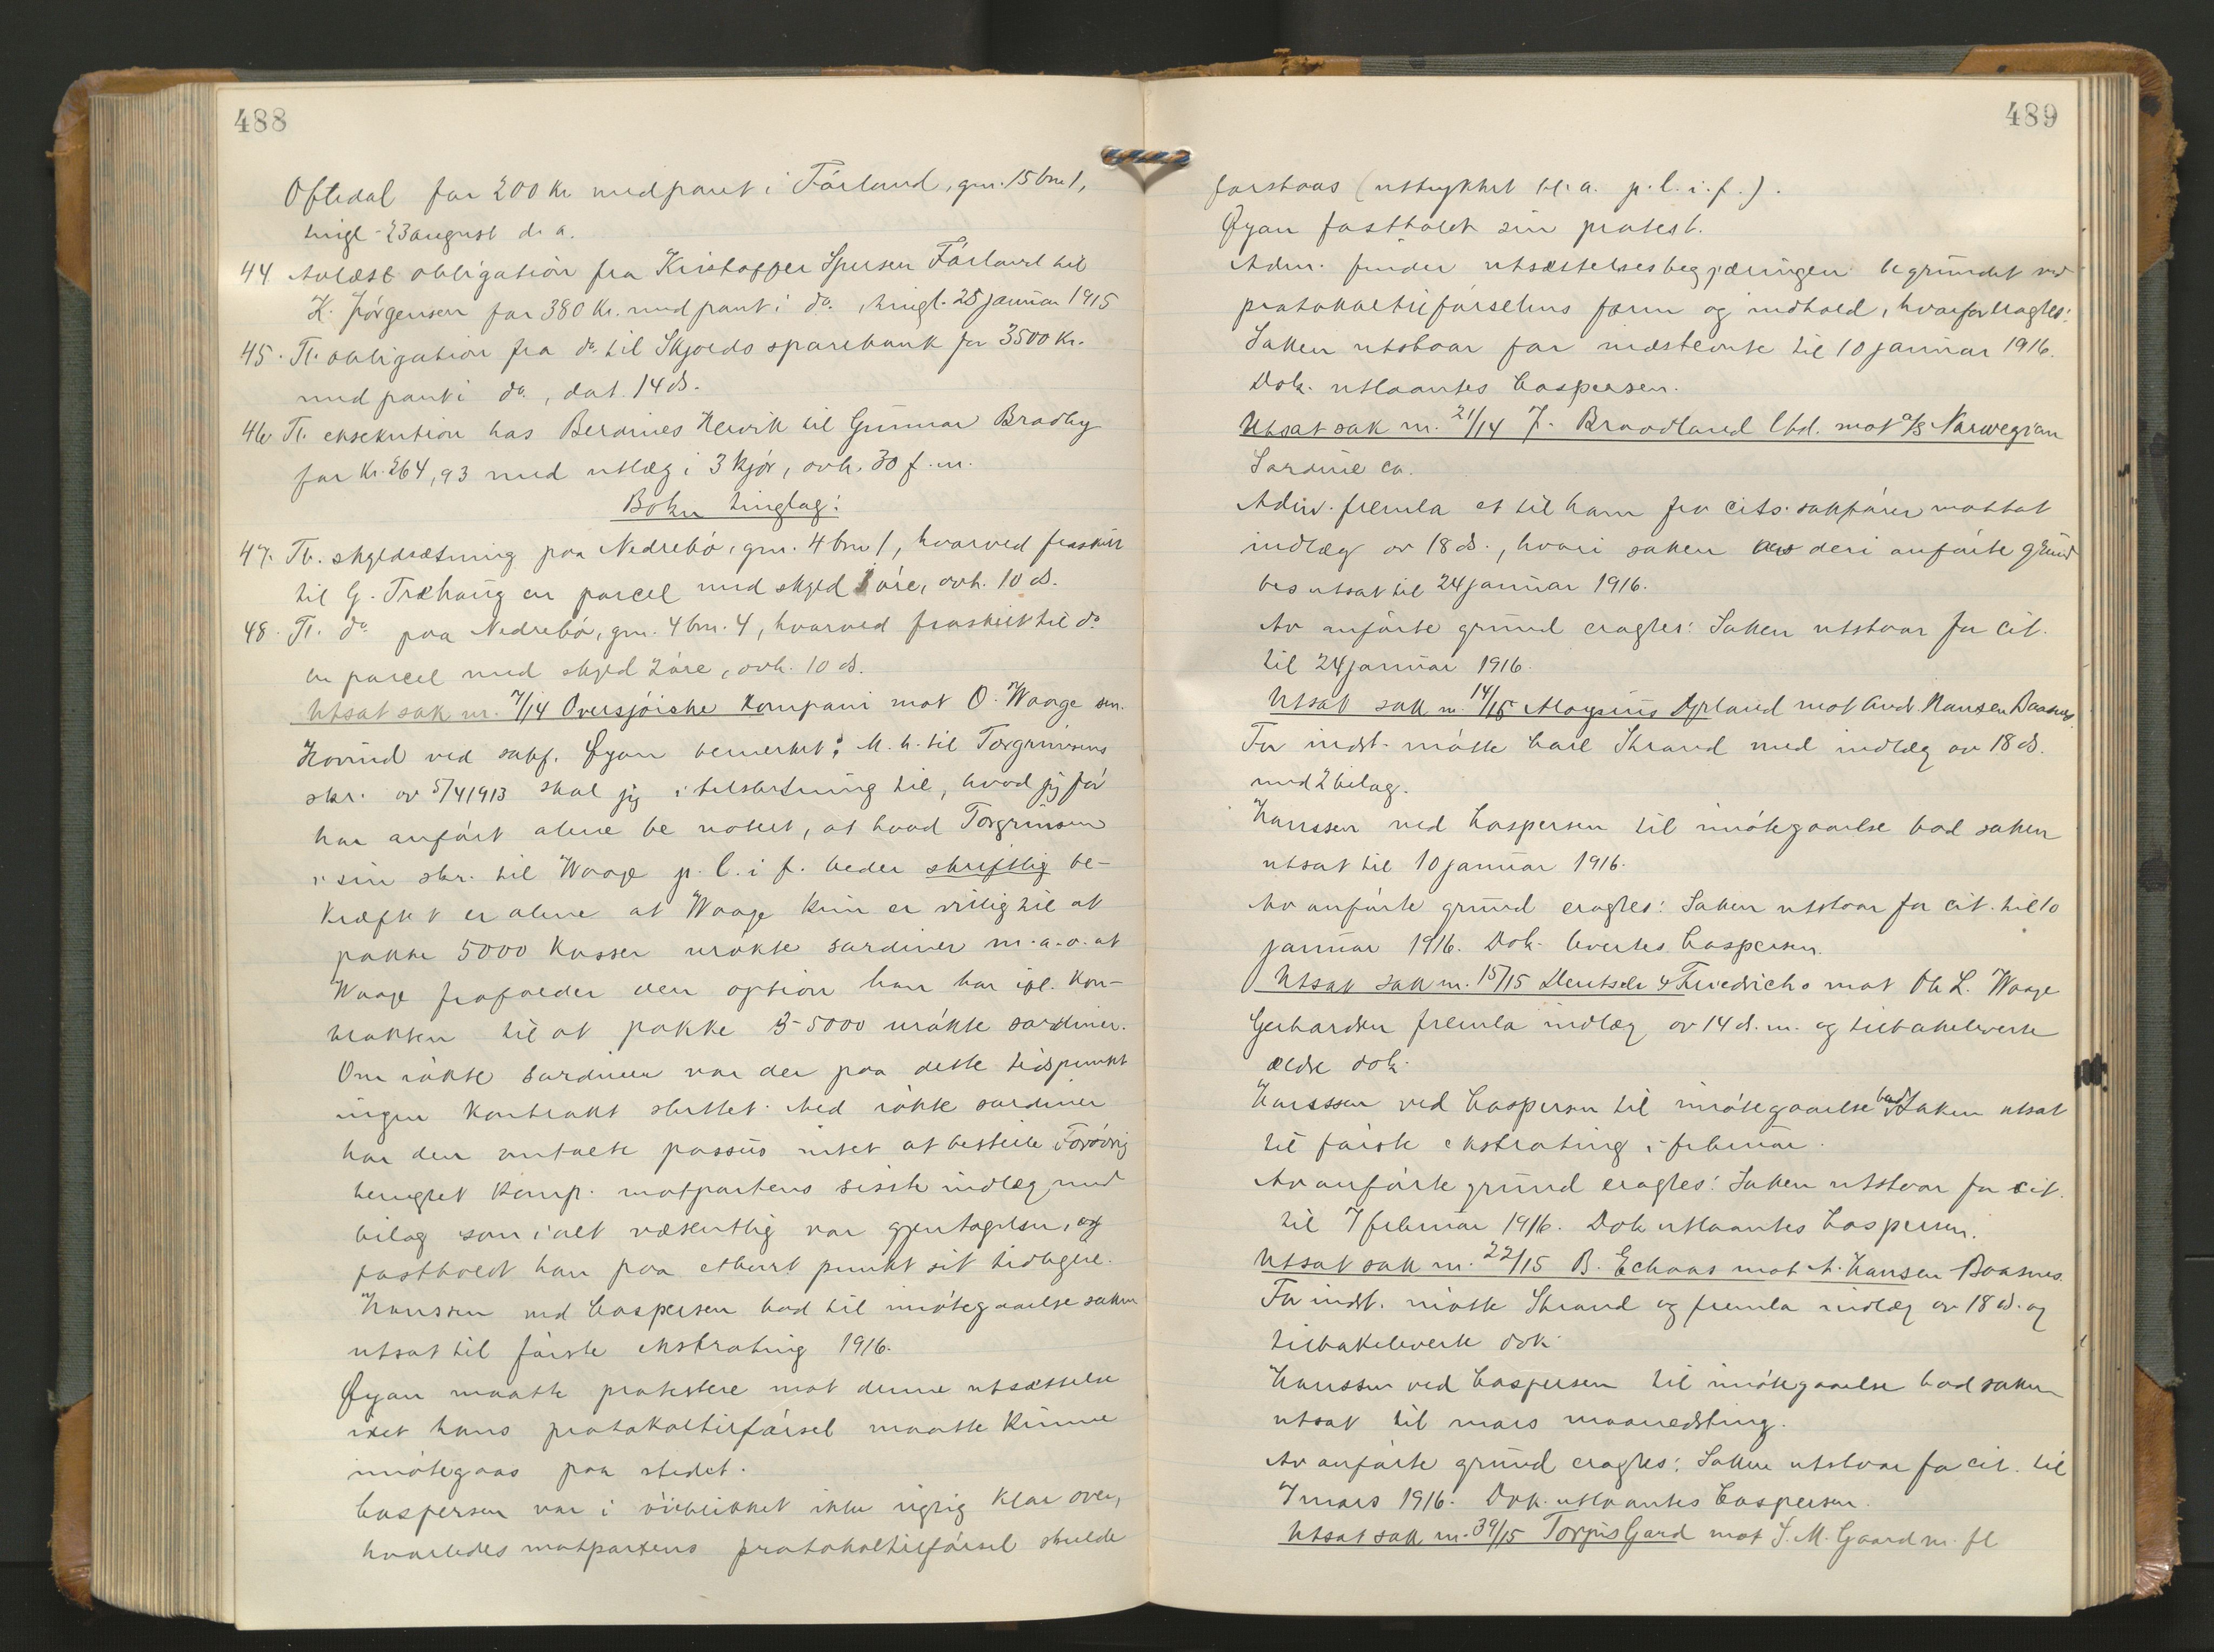 488
Oftedal for 200 kr med pant i Førland, gnr. 15 bnr 1,
tingl. 23 august d. a.
44. Avlæst obligation fra Kristoffer Førland til
K. Jørgensen for 380 kr. med pant i do., tingl. 25 januar 1915
45. Tl. obligation fra do. til Skjolds sparebank for 3500 kr.
med pant i do., dat. 14 ds.
46. Tl. eksekution hos Berdines Hervik til Gunnar Bradby
for kr. 264,93 med utlæg i 3 kjør, avh. 30 f. m.
Bokn tinglag:
47. Tl. skyldsætning paa Nedrebø, gnr. 4 bnr 1, hvorved fraskilt
til G. Træhaug en parcel med skyld 1 øre, avh. 10 ds.
48. Tl. do paa Nedrebø, gnr. 4 bnr. 4, hvorved fraskilt til do
en parcel med skyld 2 øre, avh. 10 ds.
Utsat sak nr. 7/14 Oversjøiske Kompani mot O. Waage sen.
Hovind ved sakf. Øyan bemerket: M. h. til Torgrimsens
skr. av 5/4 1913 skal jeg i tilslutning til, hvad jeg før
har anført alene be notert, at hvad Torgrimsen
i sin skr. til Waage p. l. i f. beder skriftlig be-
kræftet er alene at Waage kun er villig til at
pakke 5000 kasser urøkte sardiner m. a. o. at
Waage frafalder den option han har ifl. kon-
trakten til at pakke 3-5000 urøkte sardiner.
Om røkte sardiner var der paa dette tidspunkt
ingen kontrakt sluttet. Med røkte sardiner
har den omtalte passus intet at bestille. Forøvrig
benegtet komp. motpartens sisste indlæg med
bilag som i alt væsentlig var gjentagelser, og
fastholdt han paa ethvert punkt sit tidligere.
Hanssen ved Caspersen bad til imøtegaaelse saken
utsat til første ekstrating 1916.
Øyan maatte protestere mot denne utsættelse
idet hans protokoltilførsel maatte kunne
imøtegaas paa stedet.
Caspersen var i øieblikket ikke rigtig klar over,
hvorledes motpartens protokoltilførsel skulde
489
forstaas (uttrykket bl. a. p. l. i. f.).
Øyan fastholdt sin protest.
Adm. finder utsættelsesbegjæringen begrundet ved
protokoltilførselens form og indhold, hvorfor eragtes:
Saken utstaar for indstevnte til 10 januar 1916.
Dok. utlaantes Caspersen.
Utsat sak nr. 21/14 J. Braadland Ltd. mot A/S Norwegian
Sardine co.
Adm. fremla et til ham fra cits. sakfører mottat
indlæg av 18 ds., hvori saken av deri anførte grund
bes utsat til 24 januar 1916.
Av anførte grund eragtes: Saken utstaar for cit.
til 24 januar 1916.
Utsat sak nr. 14/15 Aloysius Dyrland mot And. Hansen Baasnes
For indst. møtte Carl Strand med indlæg av 18 ds.
med 2 bilag.
Hanssen ved Caspersen til imøtegaaelse bad saken
utsat til 10 januar 1916.
Av anførte grund eragtes: Saken utstaar for cit. til 10
januar 1916. Dok. levertes Caspersen.
Utsat sak nr. 15/15 Deutsch & Friedrichs mot Ole L. Waage
Gerhardsen fremla indlæg av 14 d. m. og tilbakeleverte
ældre dok.
Hanssen ved Caspersen til imøtegaaelse bad saken utsat
til første ekstrating i februar.
Av anførte grund eragtes: Saken utstaar for cit.
til 7 februar 1916. Dok utlaantes Caspersen.
Utsat sak nr. 22/15 B. Echaas mot A. Hansen Baasnes.
For indst. møtte Strand og fremla indlæg av 18 ds. og
tilbakeleverte dok.
Hanssen ved Caspersen til imøtegaaelse bad saken
utsat til mars maanedsting.
Av anførte grund eragtes: Saken utstaar for cit. til
7 mars 1916. Dok. utlaantes Caspersen.
Utsat sak nr. 39/15 Torjus Gard mot S. M. Gaard m. fl